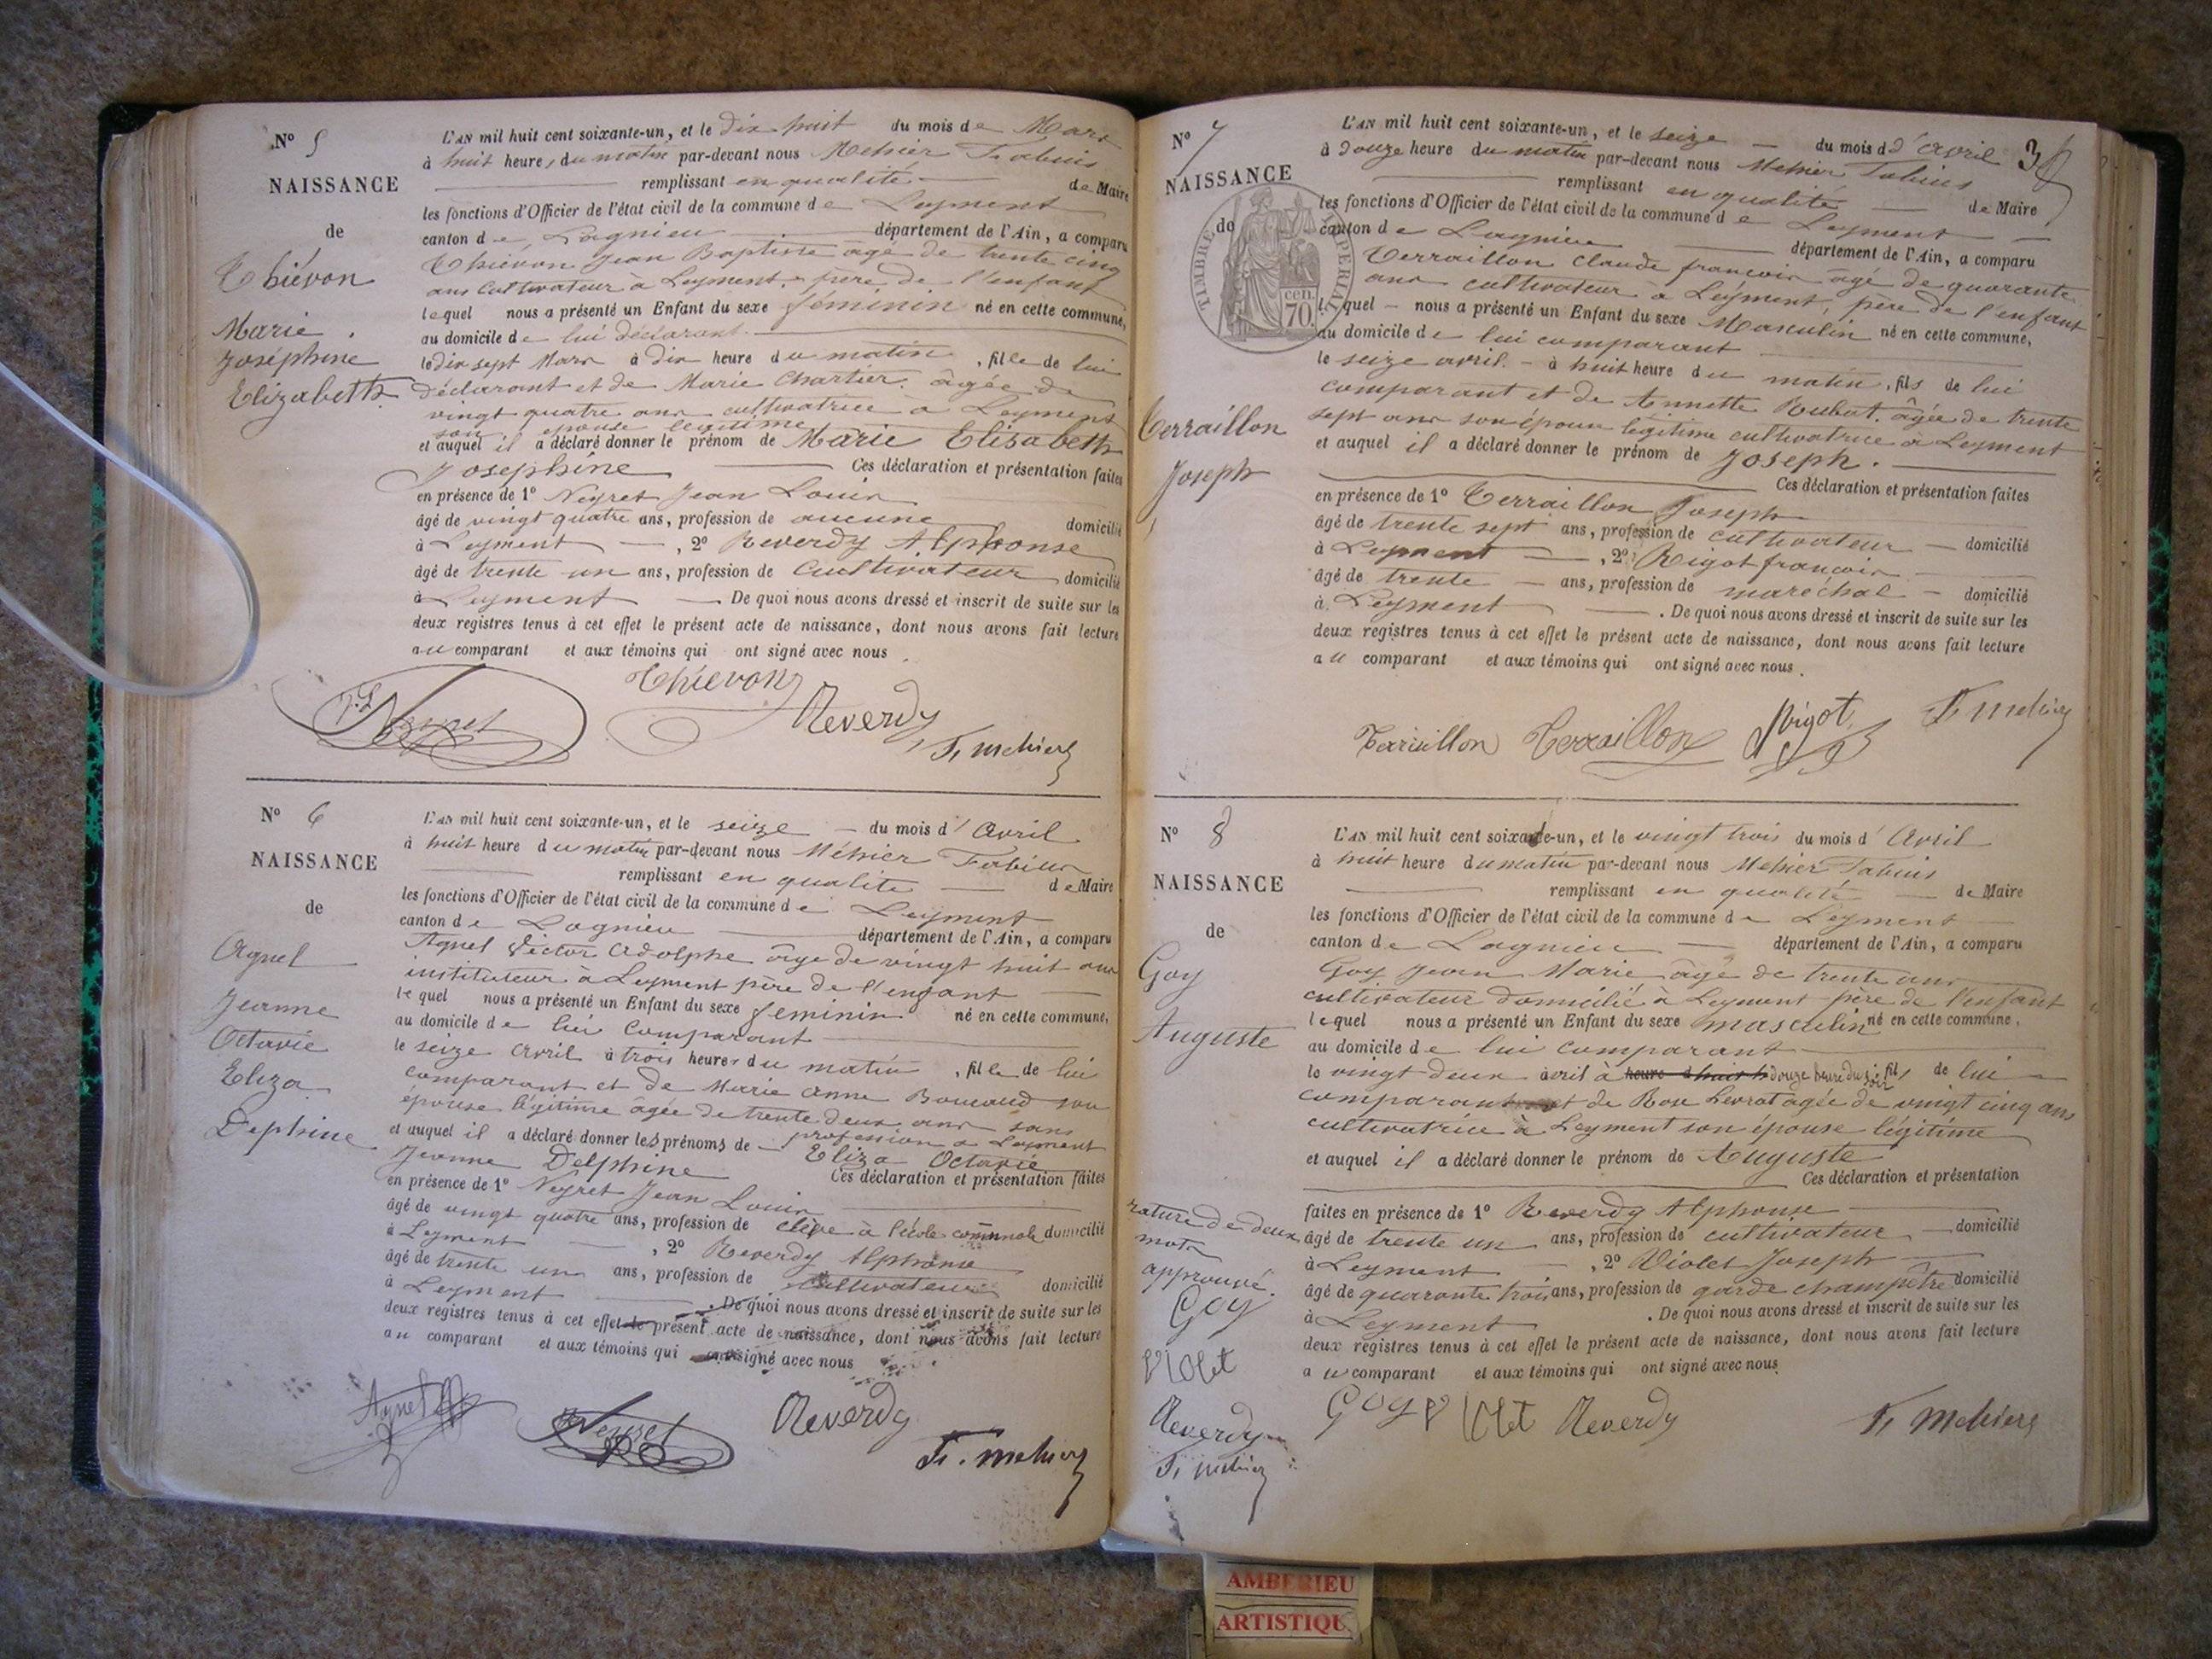 N° 5
NAISSANCE
de
Thiévon
Marie
Joséphine
Elizabeth
L'AN mil huit cent soixante-un, et le dix huit du mois de Mars
à huit heures du matin par-devant nous Mehier Fabius
remplissant en qualité de Maire
les fonctions d'Officier de l'état civil de la commune de Leyment
canton de Lagnieu département de l'Ain, a comparu
Thiévon Jean Baptiste âgé de trente cinq
ans cultivateur à Leyment, père de l'enfant
lequel nous a présenté un Enfant du sexe féminin né en cette commune,
au domicile de lui déclarant
le dix sept Mars à dix heure du matin, fille de lui
déclarant et de Marie Chartier âgée de
vingt quatre ans cultivatrice à Leyment
son épouse légitime
et auquel il a déclaré donner le prénom de Marie Elisabeth
Joséphine Ces déclaration et présentation faites
en présence de 1° Neyret Jean Louis
âgé de vingt quatre ans, profession de aucune domicilié
à Leyment, 2° Reverdy Alphonse
âgé de trente un ans, profession de Cultivateur domicilié
à Leyment De quoi nous avons dressé et inscrit de suite sur les
deux registres tenus à cet effet le présent acte de naissance, dont nous avons fait lecture
au comparant et aux témoins qui ont signé avec nous.
J. L. Neyret Thiévon Reverdy F. Mehier
N° 6
NAISSANCE
de
Agnel
Jeanne
Octavie
Eliza
Delphine
L'AN mil huit cent soixante-un, et le seize du mois d'Avril
à huit heure du matin par-devant nous Méhier Fabius
remplissant en qualité de Maire
les fonctions d'Officier de l'état civil de la commune de Leyment
canton de Lagnieu département de l'Ain, a comparu
Agnel Victor Adolphe âge de vingt huit ans
instituteur à Leyment père de l'enfant
lequel nous a présenté un Enfant du sexe féminin né en cette commune,
au domicile de lui comparant
le seize avril à trois heures du matin, fille de lui
comparant et de Marie Anne son
épouse légitime âgée de trente deux ans sans
profession à Leyment
et auquel il a déclaré donner les prénoms de Eliza Octavie
Jeanne Delphine Ces déclaration et présentation faites
en présence de 1° Neyret Jean Louis
âgé de vingt quatre ans, profession de élève à l'école communale domicilié
à Leyment, 2° Reverdy Alphonse
âgé de trente un ans, profession de cultivateur domicilié
à Leyment. De quoi nous avons dressé et inscrit de suite sur les
deux registres tenus à cet effet le présent acte de naissance, dont nous avons fait lecture
au comparant et aux témoins qui ont signé avec nous
Agnel Neyret Reverdy F. Mehier
N° 7
NAISSANCE
de
TIMBRE IMPERIAL
70 cen.
Terraillon
Joseph
L'AN mil huit cent soixante-un, et le seize du mois d'avril
à douze heure du matin par-devant nous Mehier Fabius
remplissant en qualité de Maire
les fonctions d'Officier de l'état civil de la commune de Leyment
canton de Lagnieu département de l'Ain, a comparu
Terraillon Claude françois âgé de quarante
ans cultivateur à Leyment, père de l'enfant
lequel nous a présenté un Enfant du sexe Masculin né en cette commune,
au domicile de lui comparant
le seize avril à huit heure du matin, fils de lui
comparant et de Annette Rubat âgée de trente
sept ans son épouse légitime cultivatrice à Leyment
et auquel il a déclaré donner le prénom de Joseph.
Ces déclaration et présentation faites
en présence de 1° Terraillon Joseph
âgé de trente sept ans, profession de cultivateur domicilié
à Leyment, 2° Rigot françois
âgé de trente ans, profession de maréchal domicilié
à Leyment. De quoi nous avons dressé et inscrit de suite sur les
deux registres tenus à cet effet le présent acte de naissance, dont nous avons fait lecture
au comparant et aux témoins qui ont signé avec nous.
Terraillon Terraillon Rigot F. Mehier
N° 8
NAISSANCE
de
Goy
Auguste
L'AN mil huit cent soixante-un, et le vingt trois du mois d'Avril
à huit heure du matin par-devant nous Mehier Fabius
remplissant en qualité de Maire
les fonctions d'Officier de l'état civil de la commune de Leyment
canton de Lagnieu département de l'Ain, a comparu
Goy Jean Marie âgé de trente ans
cultivateur domicilié à Leyment père de l'enfant
lequel nous a présenté un Enfant du sexe masculin né en cette commune,
au domicile de lui comparant
le vingt deux avril à douze heure du soir, fils de lui
comparant et de Rose Levrat agée de vingt cinq ans
cultivatrice à Leyment son épouse légitime
et auquel il a déclaré donner le prénom de Auguste
Ces déclaration et présentation
faites en présence de 1° Reverdy Alphonse
âgé de trente un ans, profession de cultivateur domicilié
à Leyment, 2° Violet Joseph
âgé de quarante trois ans, profession de garde champêtre domicilié
à Leyment. De quoi nous avons dressé et inscrit de suite sur les
deux registres tenus à cet effet le présent acte de naissance, dont nous avons fait lecture
au comparant et aux témoins qui ont signé avec nous
rature de deux
mots
approuvé.
Goy
Violet
Reverdy
F. Mehier
Goy Violet Reverdy F. Mehier
AMBERIEU
ARTISTIQU